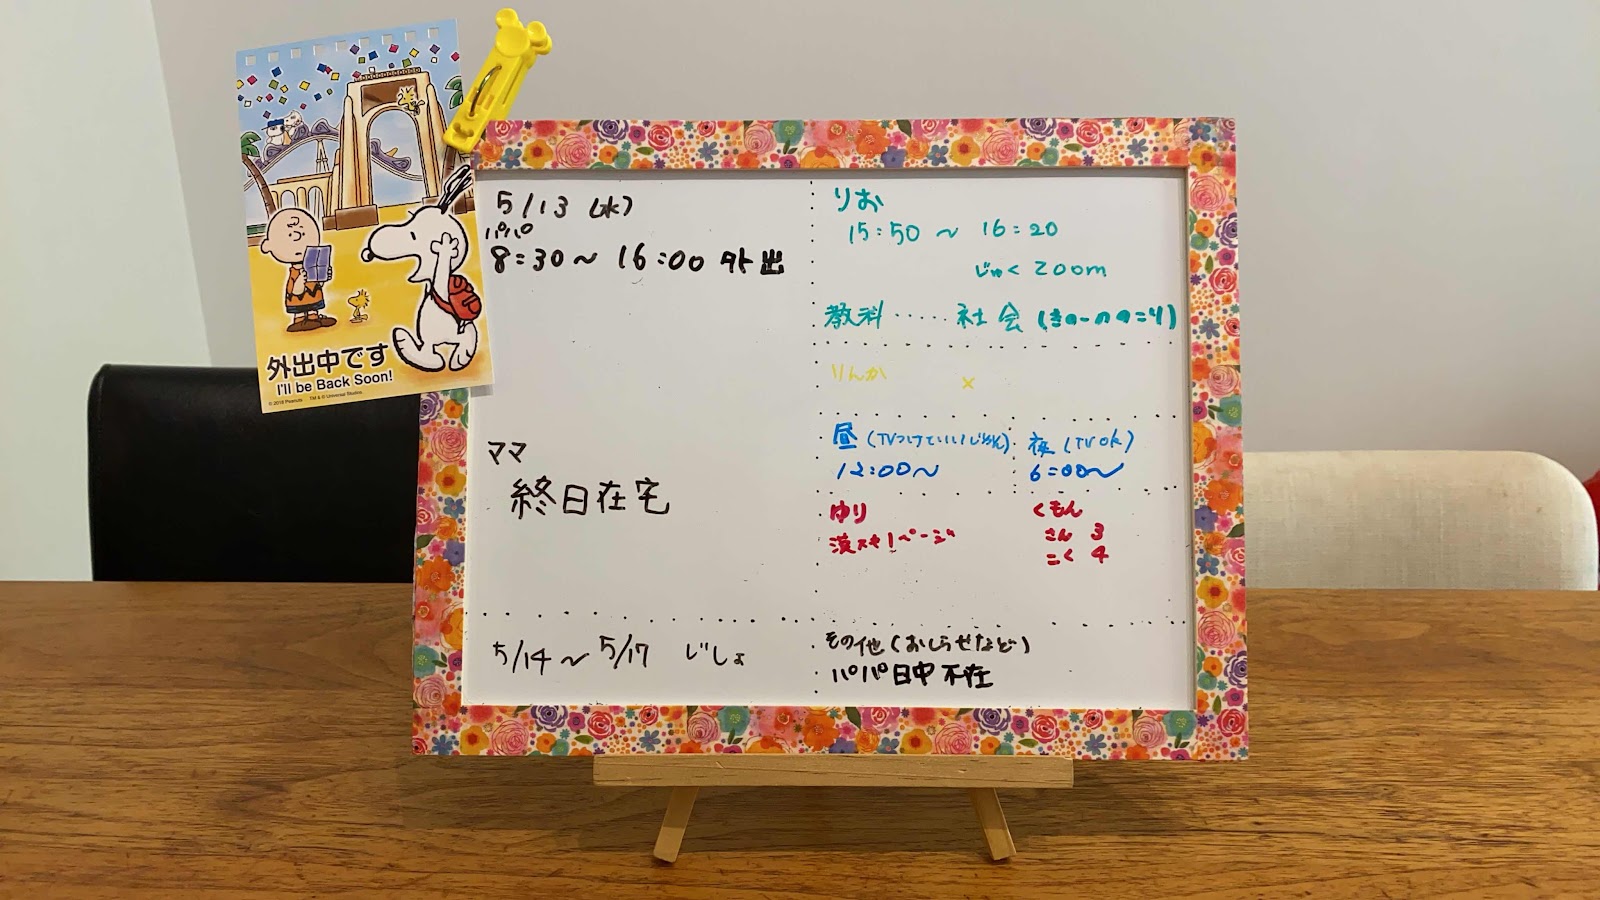 外出中です
I'll be Back Soon!
© 2018 Peanuts TM & © Universal Studios
5/13 (水)
パパ
8:30〜16:00 外出
ママ
終日在宅
5/14〜5/17 じしょ
りお
15:50 〜 16:20
じゅく zoom
教科‥‥‥社会(きの-ののこり)
りんか ×
昼(TVつけていいじかん)
12:00〜
夜(TVok)
6:00〜
ゆり
漢スキ1ページ
くもん
さん 3
こく 4
その他(おしらせなど)
パパ日中不在